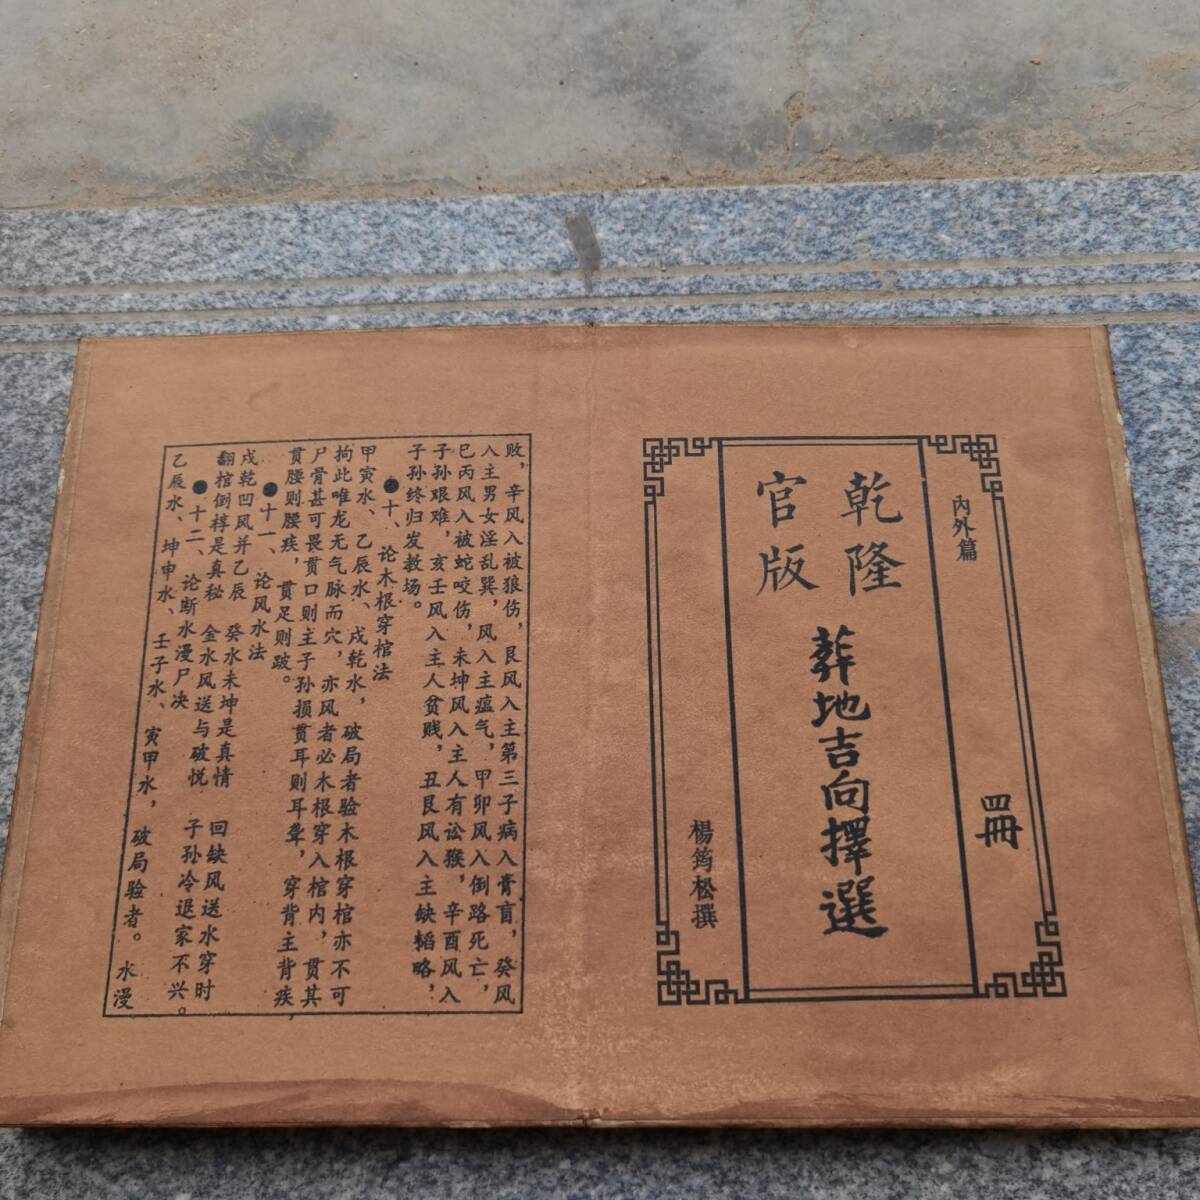 內外篇
四冊
乾隆
官版
葬地吉向擇選
楊筠松撰
败，辛风入被狼伤，艮风入主第三子病入膏盲，癸风
入主男女淫乱巽，风入主瘟气，甲卯风入倒路死亡，
巳丙风入被蛇咬伤，未坤风入主人有讼猴，辛酉风入
子孙艰难，亥壬风入主人贫贱，丑艮风入主缺韬略，
子孙终归发教场。
●十、论木根穿棺法
甲寅水、乙辰水、戍乾水，破局者验木根穿棺亦不可
拘此唯龙无气脉而穴，亦风者必木根穿入棺内，贯其
尸骨甚可畏贯口则主子孙损贯耳则耳聋，穿背主背疾
贯腰则腰疾，贯足则跛。
●十一、论风水法
戍乾凹风并乙辰 癸水未坤是真情 回缺风送水穿时
翻棺倒椁是真秘 金水风送与破悦 子孙冷退家不兴。
●十二、论断水漫尸决
乙辰水、坤申水、壬子水、寅甲水，破局验者。水漫